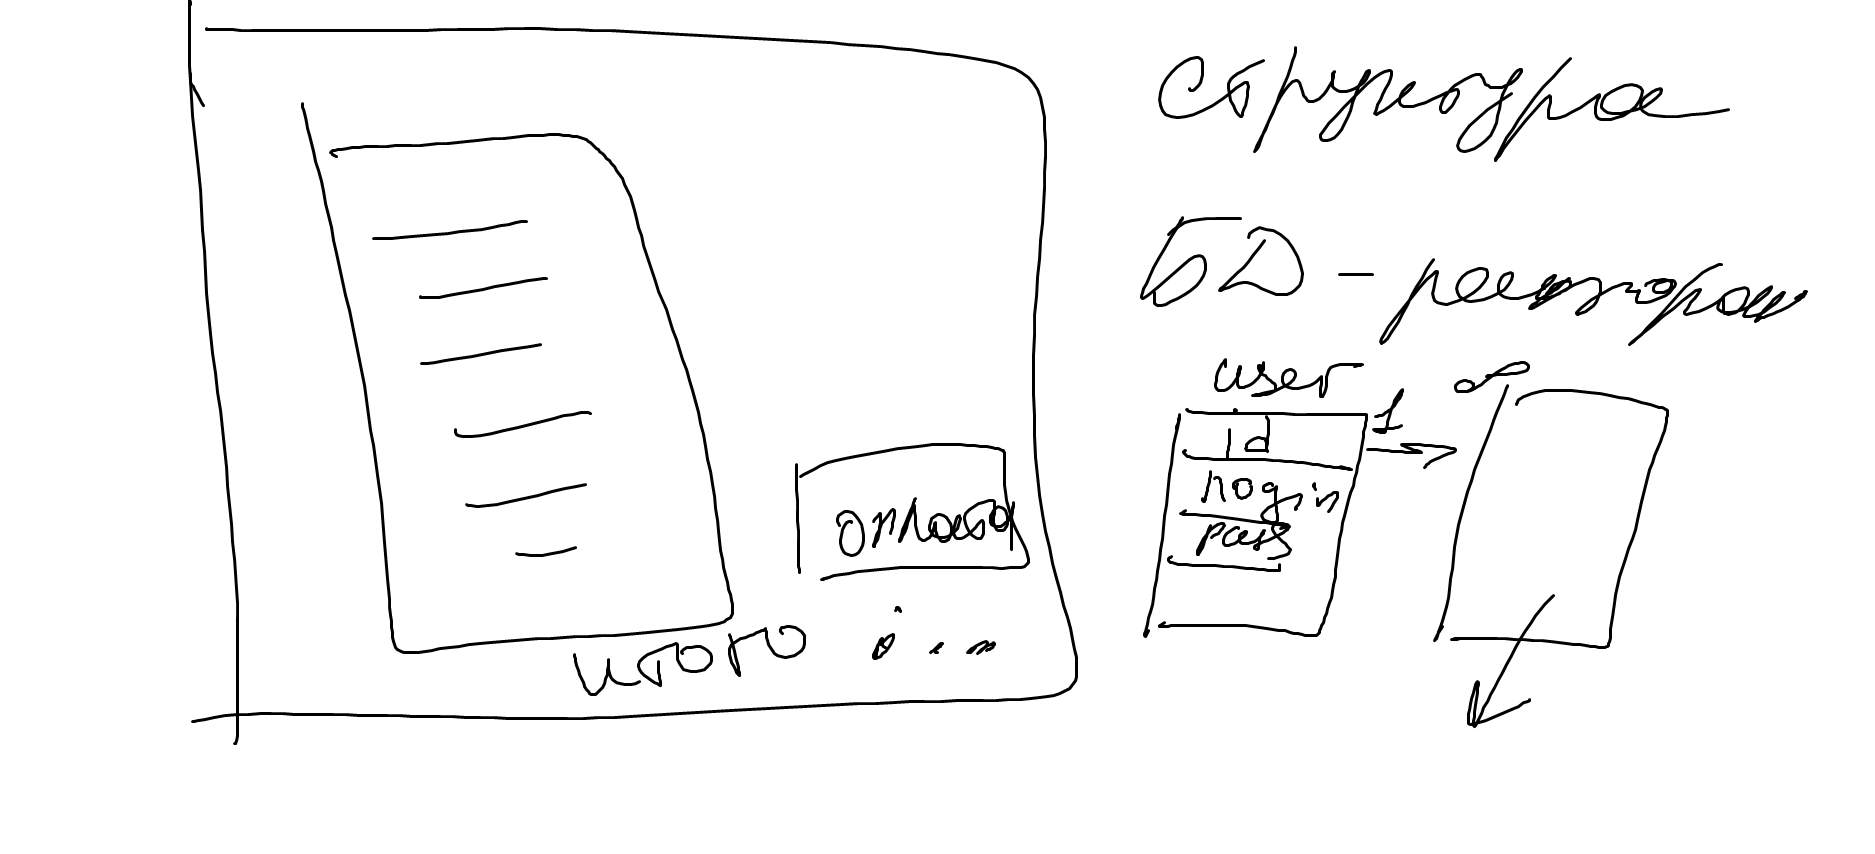 оплата
итого : ...
структура
БД - ресторан
user
1 ∞
id
login
pass